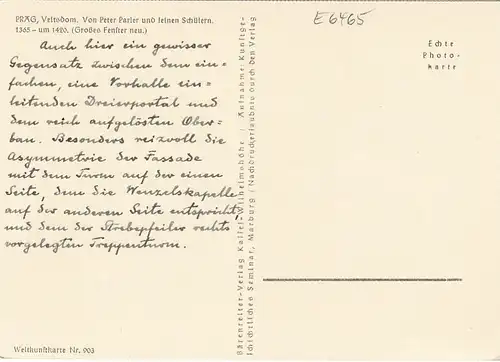 PRAG, Veitsdom. Von Peter Parler und seinen Schülern.
1365 – um 1420. (Großes Fenster neu.)
Auch hier ein gewisser
Gegensatz zwischen dem ein=
fachen, eine Vorhalle ein=
leitenden Dreierportal und
dem reich aufgelösten Ober=
bau. Besonders reizvoll die
Asymmetrie der Fassade
mit dem Turm auf der einen
Seite, dem die Wenzelskapelle
auf der anderen Seite entspricht,
und dem der Strebepfeiler rechts
vorgelegten Treppenturm.
Weltkunstkarte Nr. 903
Bärenreiter-Verlag Kassel-Wilhelmshöhe / Aufnahme Kunstge-
schichtliches Seminar, Marburg / Nachdruckerlaubnis durch den Verlag
E6465
Echte
Photo-
karte